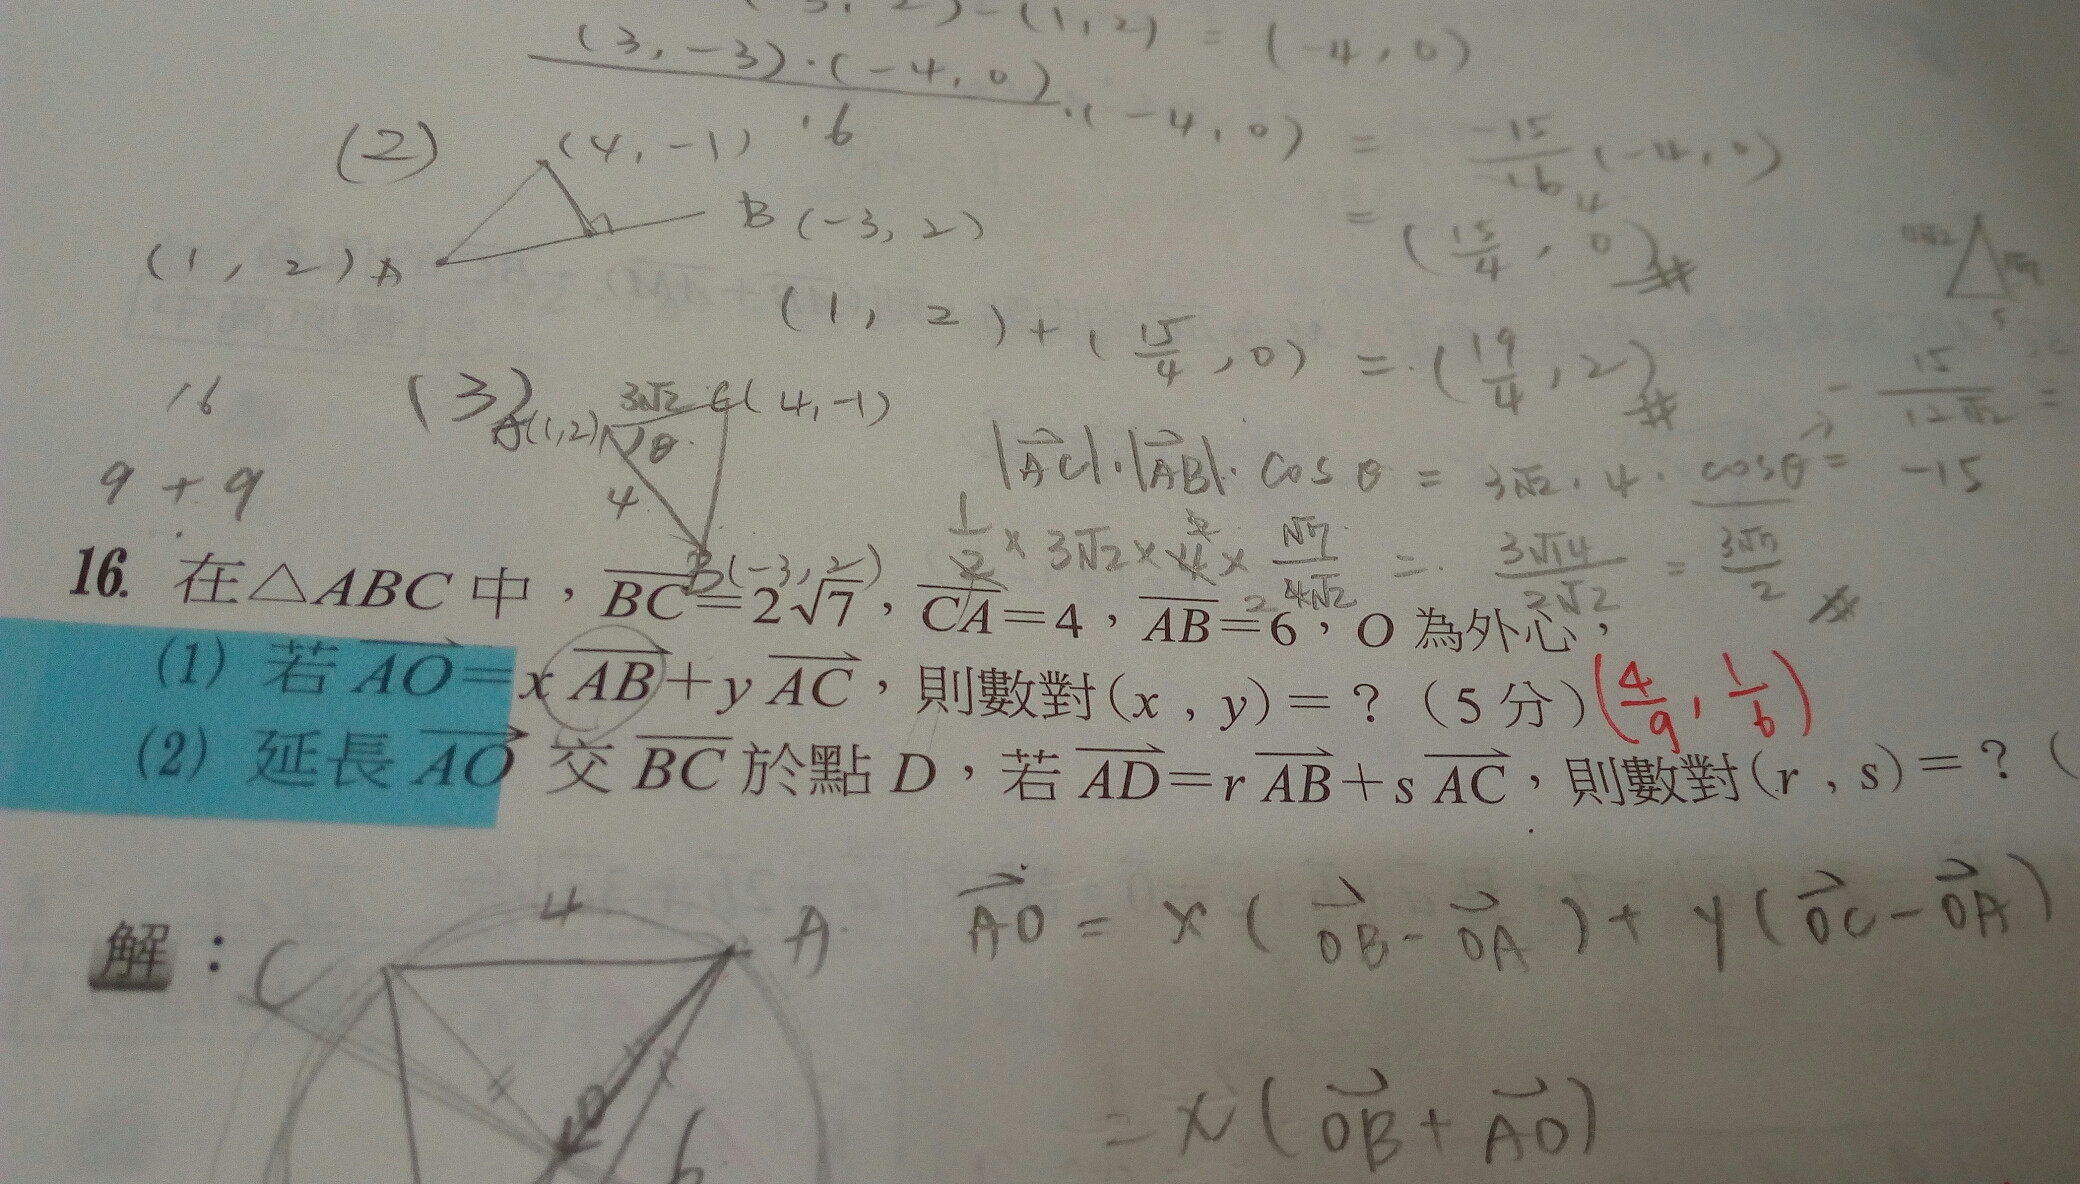 -(1,2) = (-4,0)
(3,-3)·(-4,0)
16
·(-4,0) = -15/16 (-4,0)
(2) (4,-1)
B(-3,2)
= (15/4, 0)#
(1,2)A
(1,2)+(15/4,0) = (19/4,2)#
16
(3) A(1,2) 3√2 C(4,-1) θ
-15/12√2 =
|AC|·|AB|·cosθ = 3√2·4·cosθ = -15
9+9
4
B(-3,2)
1/2 × 3√2 × 4 × √7/4√2 = 3√14/2√2 = 3√7/2 #
16. 在△ABC中,BC=2√7,CA=4,AB=6,O為外心,
(1) 若AO=xAB+yAC,則數對(x,y)=?(5分)(4/9,1/6)
(2) 延長AO交BC於點D,若AD=rAB+sAC,則數對(r,s)=?(
解:
C 4 A
AO = x(OB-OA)+y(OC-OA)
= x(OB+AO)
6